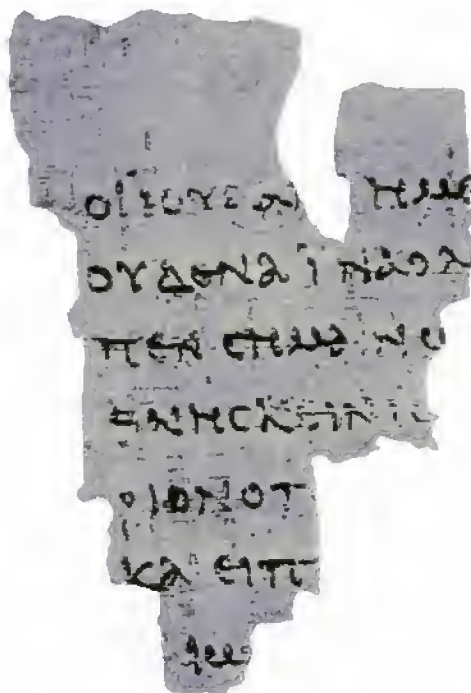 ΟΙ ΙΟΥΔΑΙ ΗΜΕ
ΟΥΔΕΝΑ ΙΝΑ Ο Λ
ΠΕΝ CΗΜΑΙΝω
ΘΝΗCΚΕΙΝ ΙC
ΡΙΟΝ Ο Π
ΚΑΙ ΕΙΠ